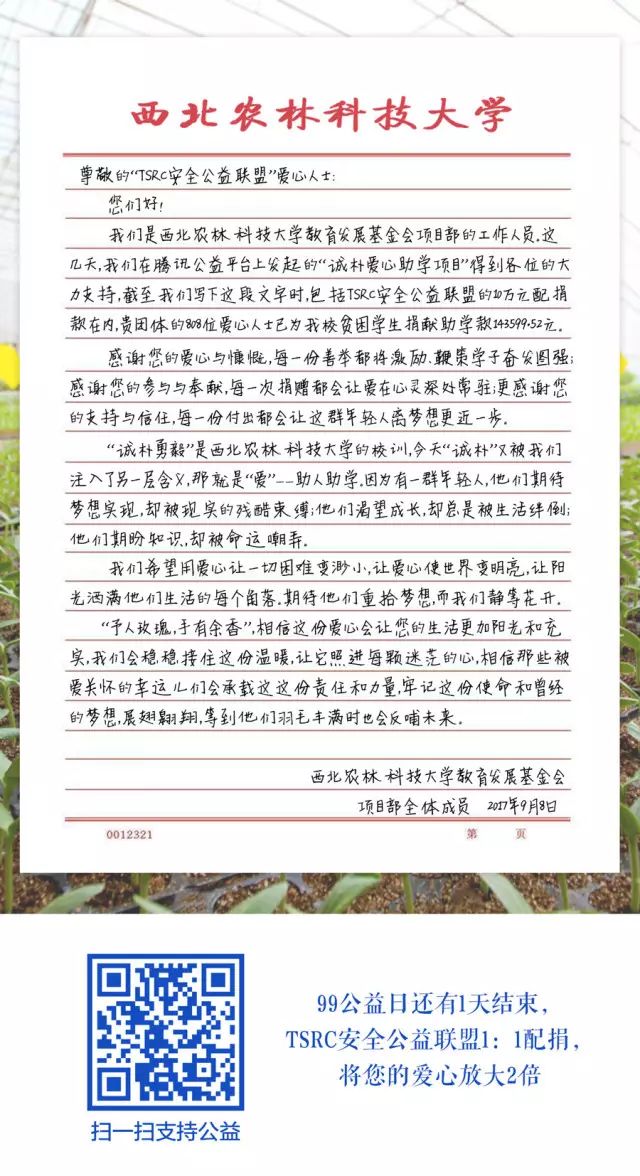 西北农林科技大学
尊敬的“TSRC安全公益联盟”爱心人士:
您们好!
我们是西北农林科技大学教育发展基金会项目部的工作人员.这
几天,我们在腾讯公益平台上发起的“诚朴爱心助学项目”得到各位的大
力支持,截至我们写下这段文字时,包括TSRC安全公益联盟的10万元配捐
款在内,贵团体的808位爱心人士已为我校贫困学生捐献助学款143599.52元。
感谢您的爱心与慷慨,每一份善举都将激励、鞭策学子奋发图强;
感谢您的参与与奉献,每一次捐赠都会让爱在心灵深处常驻;更感谢您
的支持与信任,每一份付出都会让这群年轻人离梦想更近一步。
“诚朴勇毅”是西北农林科技大学的校训,今天“诚朴”又被我们
注入了另一层含义,那就是“爱”——助人助学.因为有一群年轻人,他们期待
梦想实现,却被现实的残酷束缚;他们渴望成长,却总是被生活绊倒;
他们期盼知识,却被命运嘲弄。
我们希望用爱心让一切困难变渺小,让爱心使世界变明亮,让阳
光洒满他们生活的每个角落.期待他们重拾梦想,而我们静等花开。
“予人玫瑰,手有余香”,相信这份爱心会让您的生活更加阳光和充
实,我们会稳稳接住这份温暖,让它照进每颗迷茫的心,相信那些被
爱关怀的幸运儿们会承载这这份责任和力量,牢记这份使命和曾经
的梦想,展翅翱翔,等到他们羽毛丰满时也会反哺未来。
西北农林科技大学教育发展基金会
项目部全体成员 2017年9月8日
0012321 第 页
99公益日还有1天结束,
TSRC安全公益联盟1:1配捐,
将您的爱心放大2倍
扫一扫支持公益